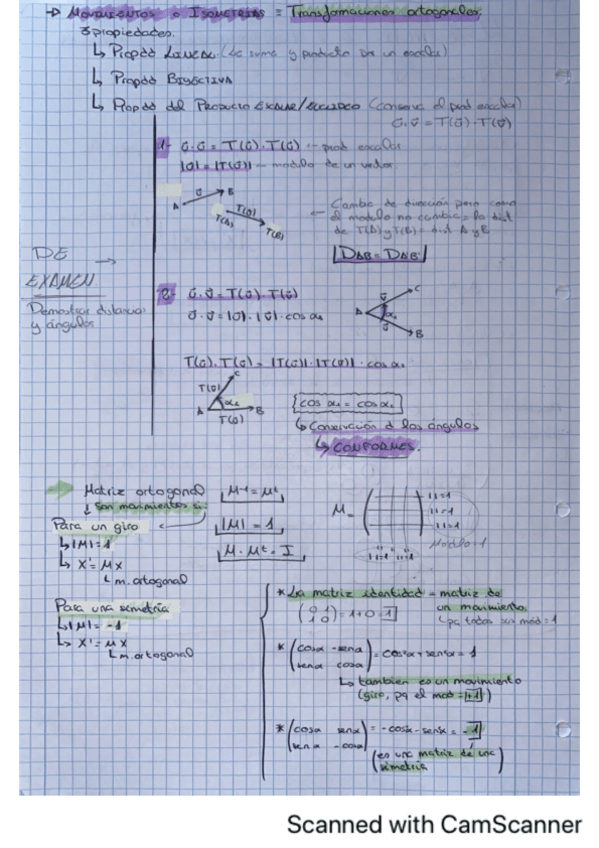 → MOVIMIENTOS o ISOMETRÍAS = Transformaciones ortogonales.
propiedades.
↳ Propdd LINEAL. (La suma y producto de un escalar)
↳ Propdd BIYECTIVA
↳ Propdd del PRODUCTO ESCALAR/EUCLIDEO (conserva el prod escalar)
ū·v̄ = T(ū)·T(v̄)
1- ū·ū = T(ū)·T(ū) - prod escalar
|ū| = |T(ū)| - modulo de un vector
A ū B
T(A) T(ū) T(B)
← Cambia de dirección pero como
el modulo no cambia = la dist
de T(A) y T(B) = dist A y B
DAB = DA'B'
DE →
EXAMEN
Demostrar distancias
y ángulos
2- ū·v̄ = T(ū)·T(v̄)
ū·v̄ = |ū|·|v̄|·cos α₁
A C B
T(ū)·T(v̄) = |T(ū)|·|T(v̄)|·cos α₂
T(v̄) C
α₂
A B
T(ū)
cos α₁ = cos α₂
↳ Conservación d los ángulos
↳ CONFORMES.
Matriz ortogonal
↓ son movimientos si:
M⁻¹ = Mᵗ
|M| = 1
M·Mᵗ = I
M =
||=1
||=1
||=1
||=1 ||=1
Modulo=1
Para un giro
↳ |M| = 1
↳ X' = MX
↳ m. ortogonal
Para una simetría
↳ |M| = -1
↳ X' = MX
↳ m. ortogonal
* La matriz identidad = matriz de
un movimiento,
= 1+0 = 1
pq todos sus mod = 1
* (cosα -senα
senα cosα) = cos²α + sen²α = 1
↳ tambien es un movimiento
(giro, pq el mod = +1)
* (cosα senα
senα -cosα) = -cos²α - sen²α = -1
(es una matriz de una
simetría)
Scanned with CamScanner